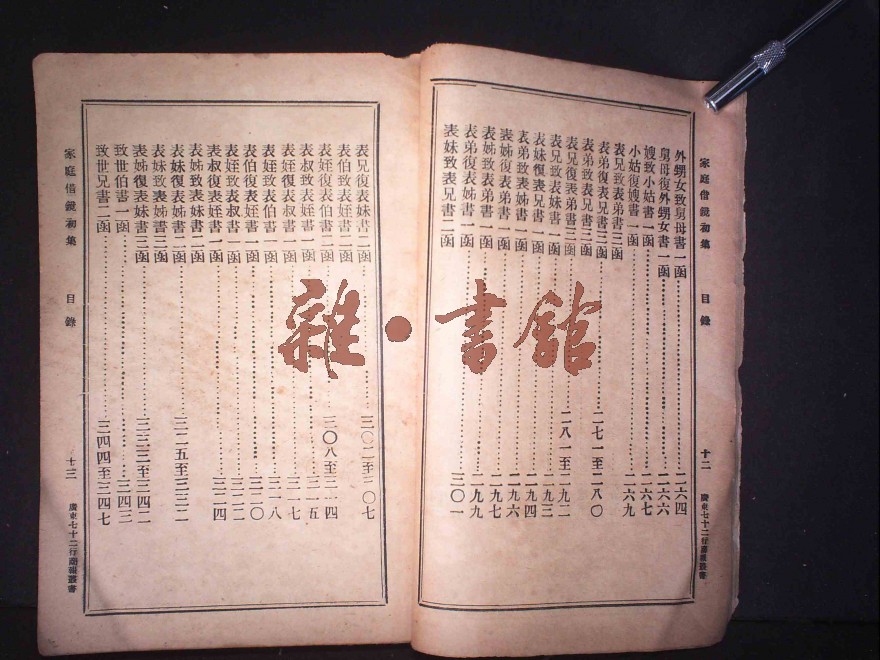 家庭借鏡初集　目錄　十二　廣東七十二行商報叢書
外甥女致舅母書一函……二六四
舅母復外甥女書一函……二六六
嫂致小姑書一函……二六七
小姑復嫂書一函……二六九
表兄致表弟書三函
表弟復表兄書三函……二七一至二八〇
表弟致表兄書三函
表兄復表弟書三函……二八一至二九二
表兄致表妹書一函……二九三
表妹復表兄書一函……二九四
表弟致表姊書一函……二九六
表姊復表弟書一函……二九七
表姊致表弟書一函
表弟復表姊書一函……二九九
表妹致表兄書二函……三〇一
表兄復表妹書二函……三〇二至三〇七
表伯致表姪書二函
表姪復表伯書二函……三〇八至三一四
表叔致表姪書一函……三一五
表姪復表叔書一函……三一七
表姪致表伯書一函……三一八
表伯復表姪書一函……三二〇
表姪致表叔書一函……三二二
表叔復表姪書一函……三二四
表姊致表妹書二函
表妹復表姊書二函……三二五至三三二
表妹致表姊書三函
表姊復表妹書三函……三三三至三四二
致世伯書一函……三四三
致世兄書二函……三四四至三四七
家庭借鏡初集　目錄　十三　廣東七十二行商報叢書
雜·書館